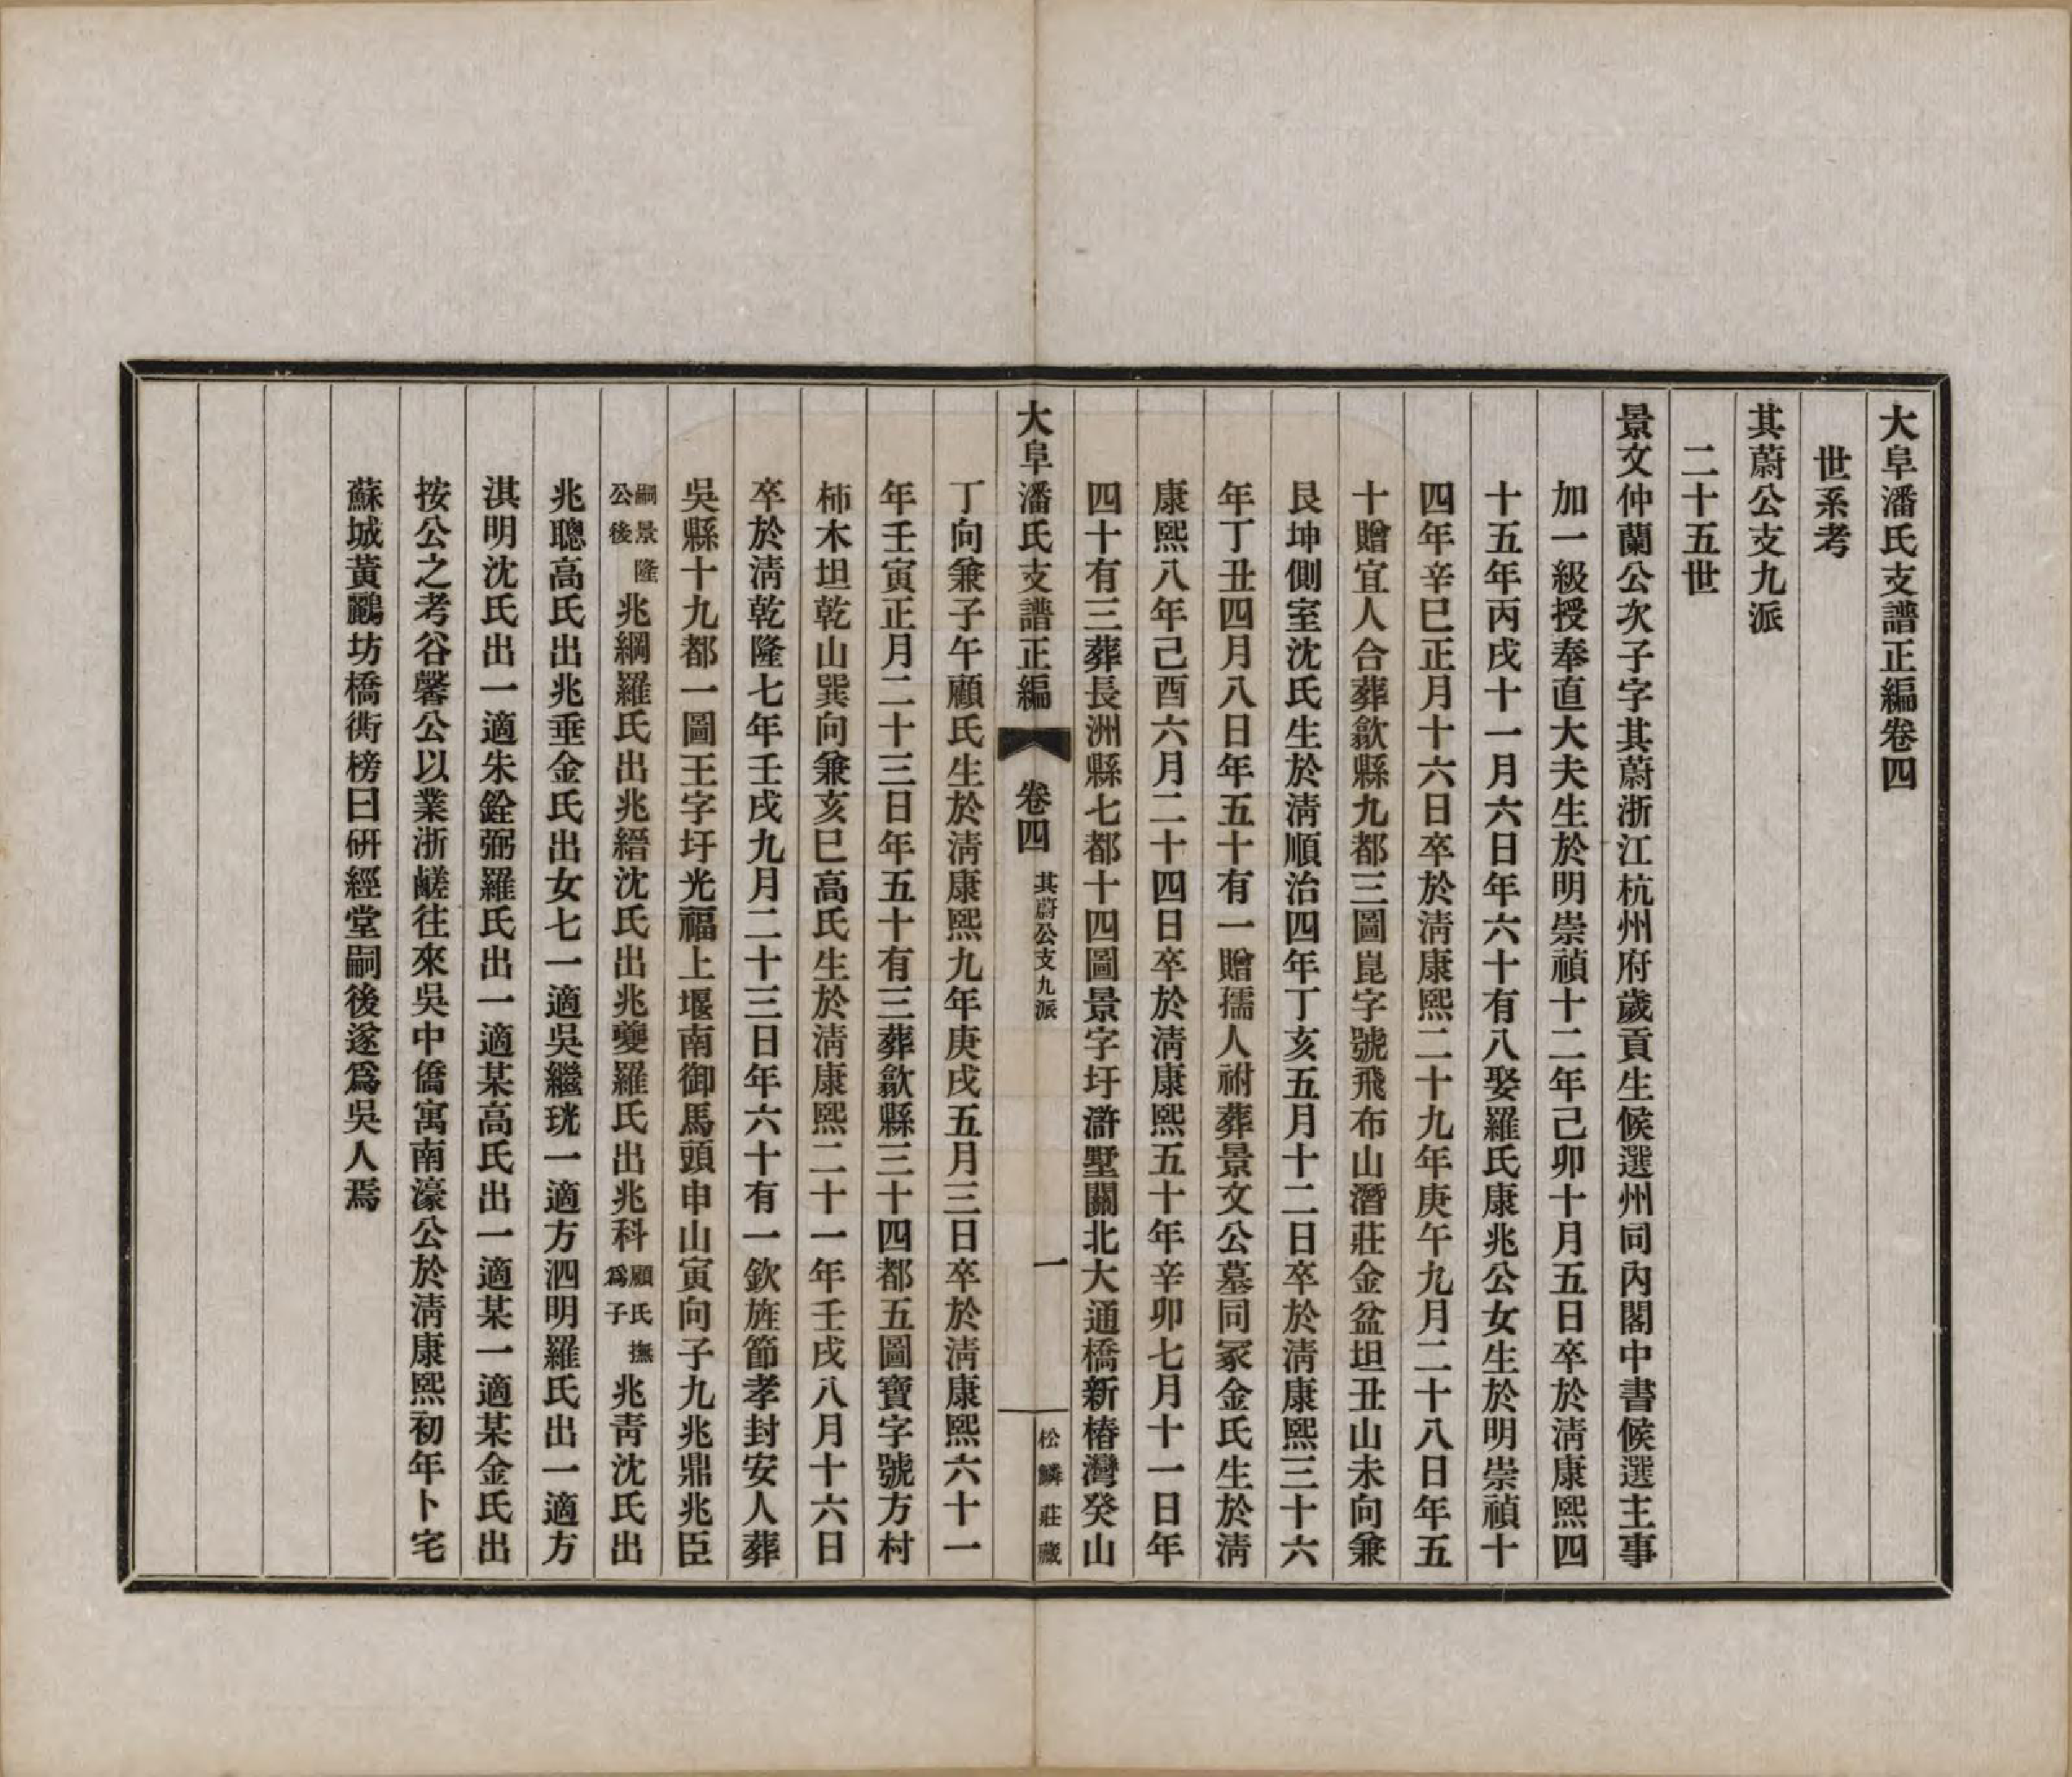 大阜潘氏支譜正編卷四
世系考
其蔚公支九派
二十五世
景文仲蘭公次子字其蔚浙江杭州府歲貢生候選州同內閣中書候選主事
加一級授奉直大夫生於明崇禎十二年己卯十月五日卒於淸康熙四
十五年丙戌十一月六日年六十有八娶羅氏康兆公女生於明崇禎十
四年辛巳正月十六日卒於淸康熙二十九年庚午九月二十八日年五
十贈宜人合葬歙縣九都三圖崑字號飛布山潛莊金盆坦丑山未向兼
艮坤側室沈氏生於淸順治四年丁亥五月十二日卒於淸康熙三十六
年丁丑四月八日年五十有一贈孺人祔葬景文公墓同冢金氏生於淸
康熙八年己酉六月二十四日卒於淸康熙五十年辛卯七月十一日年
四十有三葬長洲縣七都十四圖景字圩滸墅關北大通橋新樁灣癸山
大阜潘氏支譜正編 卷四 其蔚公支九派 一 松鱗莊藏
丁向兼子午顧氏生於淸康熙九年庚戌五月三日卒於淸康熙六十一
年壬寅正月二十三日年五十有三葬歙縣三十四都五圖寶字號方村
柿木坦乾山巽向兼亥巳高氏生於淸康熙二十一年壬戌八月十六日
卒於淸乾隆七年壬戌九月二十三日年六十有一欽旌節孝封安人葬
吳縣十九都一圖王字圩光福上堰南御馬頭申山寅向子九兆鼎兆臣
嗣景隆公後兆綱羅氏出兆縉沈氏出兆夔羅氏出兆科顧氏撫爲子兆靑沈氏出
兆聰高氏出兆垂金氏出女七一適吳繼珖一適方泗明羅氏出一適方
淇明沈氏出一適朱銓弼羅氏出一適某高氏出一適某一適某金氏出
按公之考谷馨公以業浙鹺往來吳中僑寓南濠公於淸康熙初年卜宅
蘇城黃鸝坊橋衖榜曰研經堂嗣後遂爲吳人焉